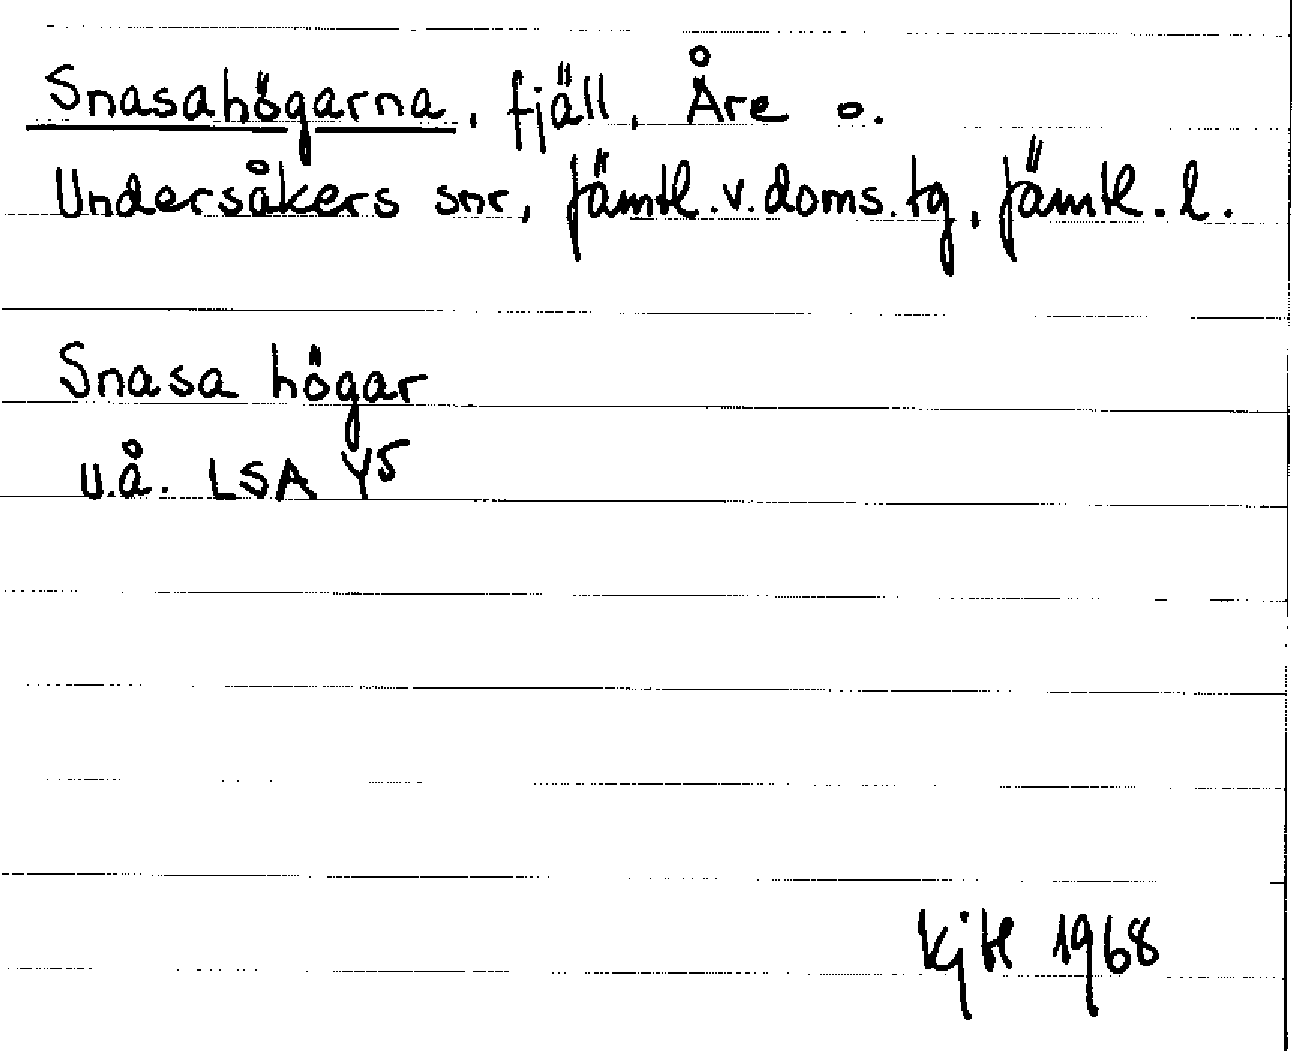 Snasahögarna, fjäll, Åre o.
Undersåkers snr, Jämtl.v.doms.tg, Jämtl.l.
Snasa högar
u.å. LSA Y5
1968